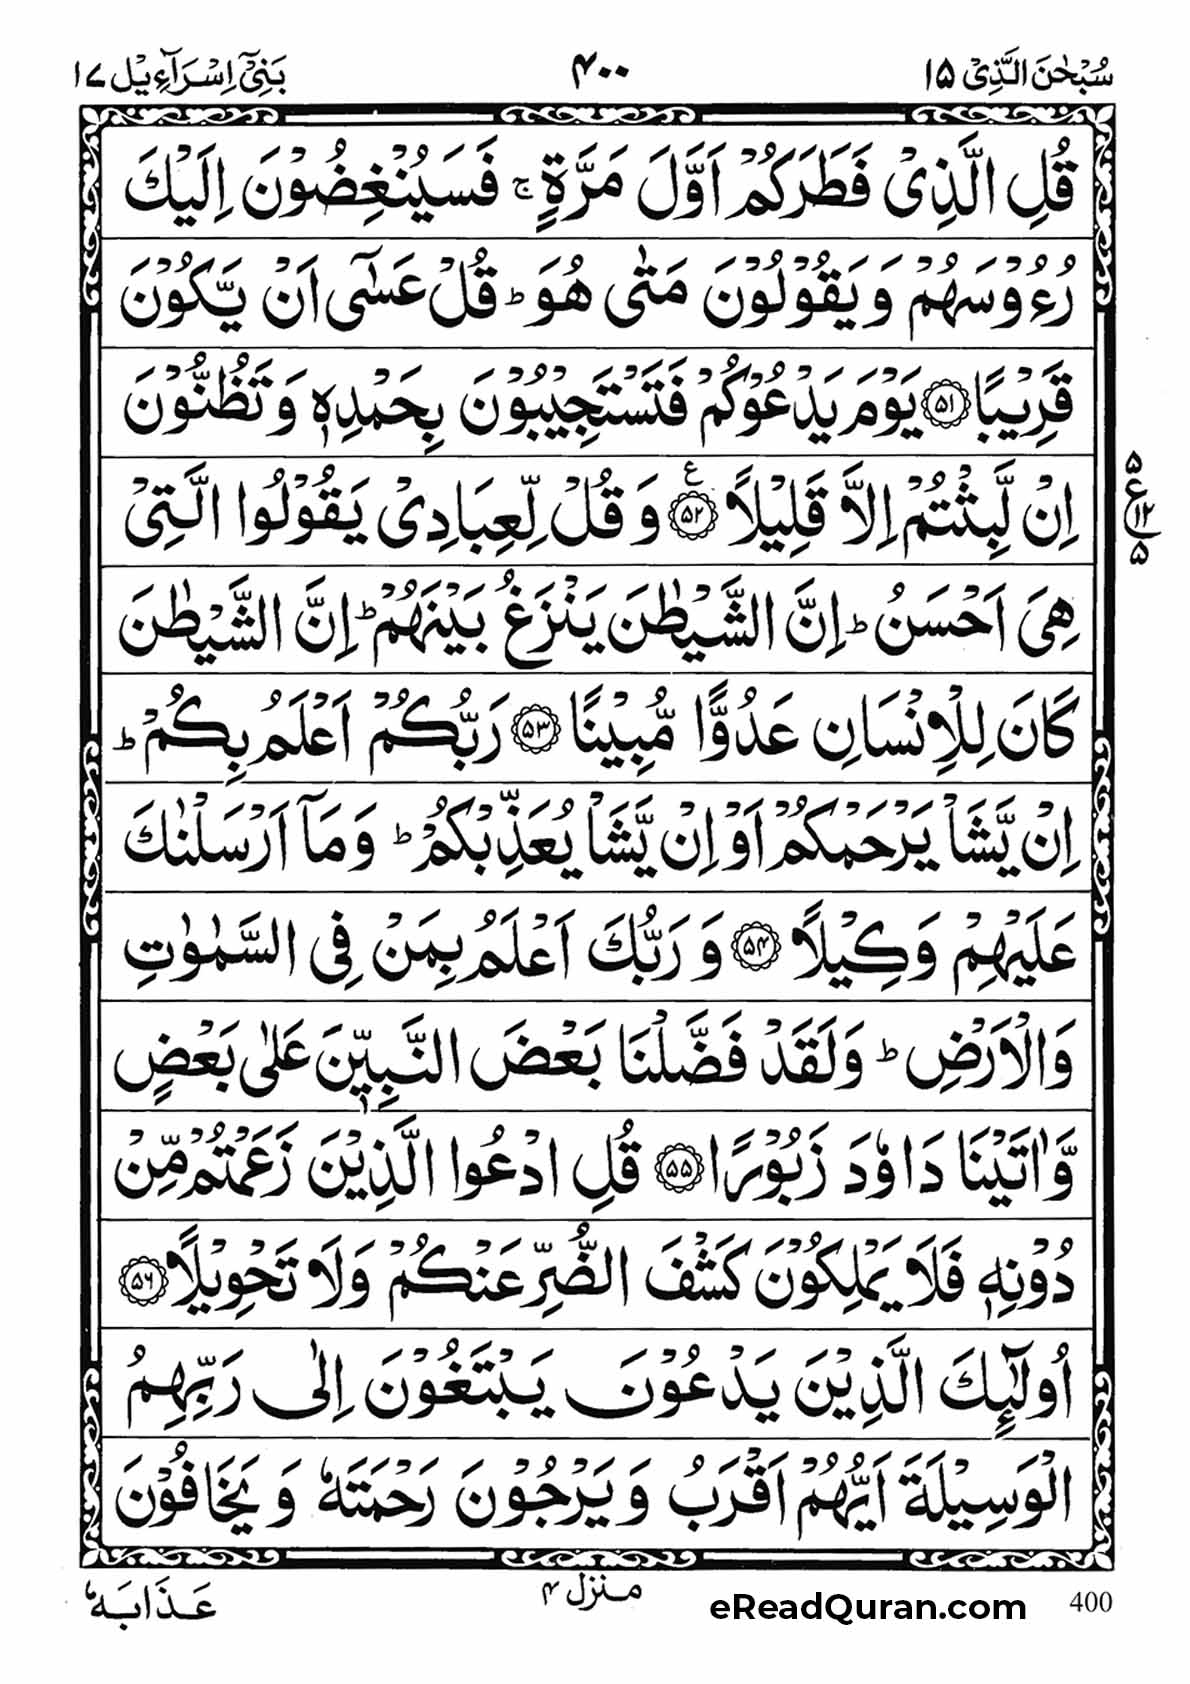 سُبْحٰنَ الَّذِیْ ۱۵
۴۰۰
بَنِیْۤ اِسْرَآءِیْل ۱۷
قُلِ الَّذِیْ فَطَرَكُمْ اَوَّلَ مَرَّةٍ ۚ فَسَیُنْغِضُوْنَ اِلَیْكَ
رُءُوْسَهُمْ وَ یَقُوْلُوْنَ مَتٰی هُوَ ؕ قُلْ عَسٰۤی اَنْ یَّكُوْنَ
قَرِیْبًا ﴿۵۱﴾ یَوْمَ یَدْعُوْكُمْ فَتَسْتَجِیْبُوْنَ بِحَمْدِهٖ وَ تَظُنُّوْنَ
اِنْ لَّبِثْتُمْ اِلَّا قَلِیْلًا ﴿۵۲﴾ ع وَ قُلْ لِّعِبَادِیْ یَقُوْلُوا الَّتِیْ
۵ ع ۱۲ ۵
هِیَ اَحْسَنُ ؕ اِنَّ الشَّیْطٰنَ یَنْزَغُ بَیْنَهُمْ ؕ اِنَّ الشَّیْطٰنَ
كَانَ لِلْاِنْسَانِ عَدُوًّا مُّبِیْنًا ﴿۵۳﴾ رَبُّكُمْ اَعْلَمُ بِكُمْ ؕ
اِنْ یَّشَاْ یَرْحَمْكُمْ اَوْ اِنْ یَّشَاْ یُعَذِّبْكُمْ ؕ وَ مَاۤ اَرْسَلْنٰكَ
عَلَیْهِمْ وَكِیْلًا ﴿۵۴﴾ وَ رَبُّكَ اَعْلَمُ بِمَنْ فِی السَّمٰوٰتِ
وَالْاَرْضِ ؕ وَلَقَدْ فَضَّلْنَا بَعْضَ النَّبِیّٖنَ عَلٰی بَعْضٍ
وَّاٰتَیْنَا دَاوٗدَ زَبُوْرًا ﴿۵۵﴾ قُلِ ادْعُوا الَّذِیْنَ زَعَمْتُمْ مِّنْ
دُوْنِهٖ فَلَا یَمْلِكُوْنَ كَشْفَ الضُّرِّ عَنْكُمْ وَلَا تَحْوِیْلًا ﴿۵۶﴾
اُولٰٓئِكَ الَّذِیْنَ یَدْعُوْنَ یَبْتَغُوْنَ اِلٰی رَبِّهِمُ
الْوَسِیْلَةَ اَیُّهُمْ اَقْرَبُ وَ یَرْجُوْنَ رَحْمَتَهٗ وَ یَخَافُوْنَ
عَذَابَهٗ
منزل ۴
eReadQuran.com
400